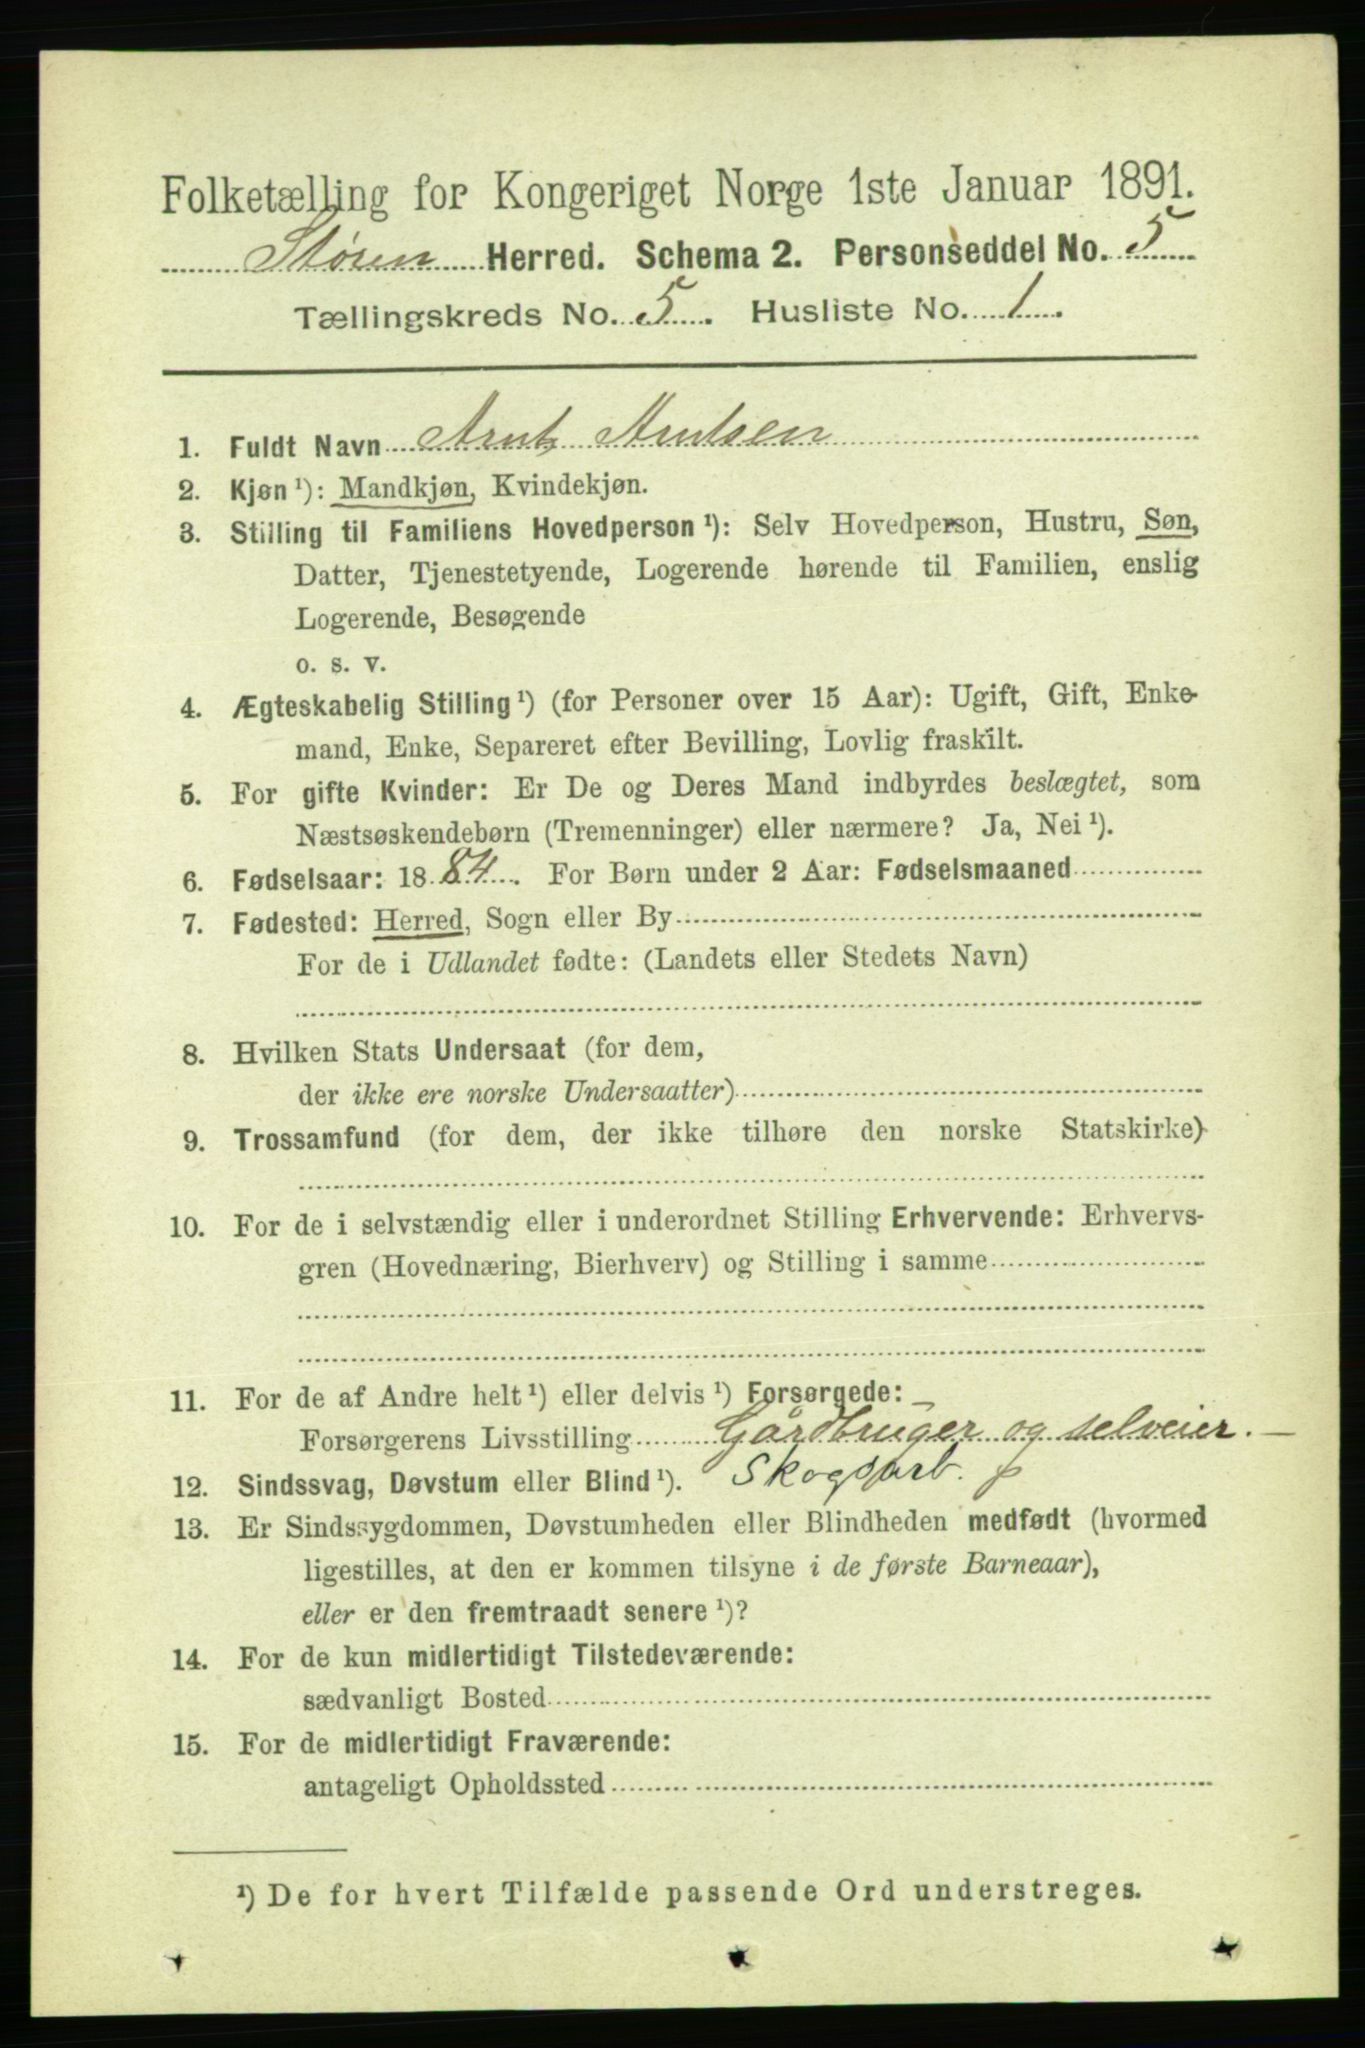 Folketælling for Kongeriget Norge 1ste Januar 1891.
Støren Herred. Schema 2. Personseddel No. 5
Tællingskreds No. 5. Husliste No. 1.
1. Fuldt Navn Arnt Arntsen
2. Kjøn ¹): Mandkjøn, Kvindekjøn.
3. Stilling til Familiens Hovedperson ¹): Selv Hovedperson, Hustru, Søn,
Datter, Tjenestetyende, Logerende hørende til Familien, enslig
Logerende, Besøgende
o. s. v.
4. Ægteskabelig Stilling ¹) (for Personer over 15 Aar): Ugift, Gift, Enke-
mand, Enke, Separeret efter Bevilling, Lovlig fraskilt.
5. For gifte Kvinder: Er De og Deres Mand indbyrdes beslægtet, som
Næstsøskendebørn (Tremenninger) eller nærmere? Ja, Nei ¹).
6. Fødselsaar: 1884. For Børn under 2 Aar: Fødselsmaaned
7. Fødested: Herred, Sogn eller By
For de i Udlandet fødte: (Landets eller Stedets Navn)
8. Hvilken Stats Undersaat (for dem,
der ikke ere norske Undersaatter)
9. Trossamfund (for dem, der ikke tilhøre den norske Statskirke)
10. For de i selvstændig eller i underordnet Stilling Erhvervende: Erhvervs-
gren (Hovednæring, Bierhverv) og Stilling i samme
11. For de af Andre helt ¹) eller delvis ¹) Forsørgede:
Forsørgerens Livsstilling Gårdbruger og selveier.
12. Sindssvag, Døvstum eller Blind ¹). Skogsarb.
13. Er Sindssygdommen, Døvstumheden eller Blindheden medfødt (hvormed
ligestilles, at den er kommen tilsyne i de første Barneaar),
eller er den fremtraadt senere ¹)?
14. For de kun midlertidigt Tilstedeværende:
sædvanligt Bosted
15. For de midlertidigt Fraværende:
antageligt Opholdssted
¹) De for hvert Tilfælde passende Ord understreges.